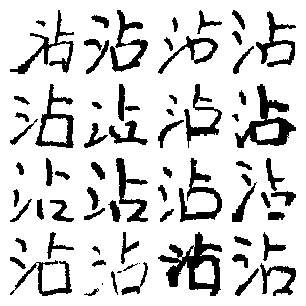 沾沾沾沾
沾沾沾沾
沾沾沾沾
沾沾沾沾